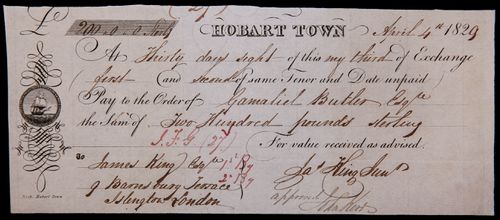 £ 200 " 0 " 0 Sterlg HOBART TOWN April 4th 1829
At Thirty days sight of this my third of Exchange
(first and second of same Tenor and Date unpaid
Pay to the Order of Gamaliel Butler Esqre
the Sum of Two Hundred pounds sterling
For value received as advised.
To
James King Esqre
9 Barnsbury Terrace
Islington London
Jas King Junr
approved
Hobart Town